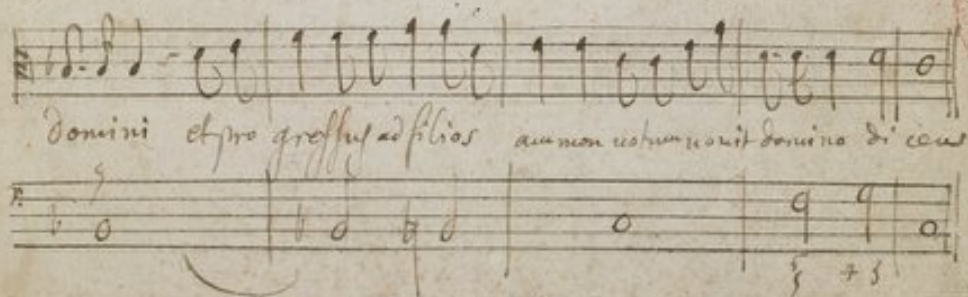 domini et pro gressus ad filios ammon votum vovit domino di cens